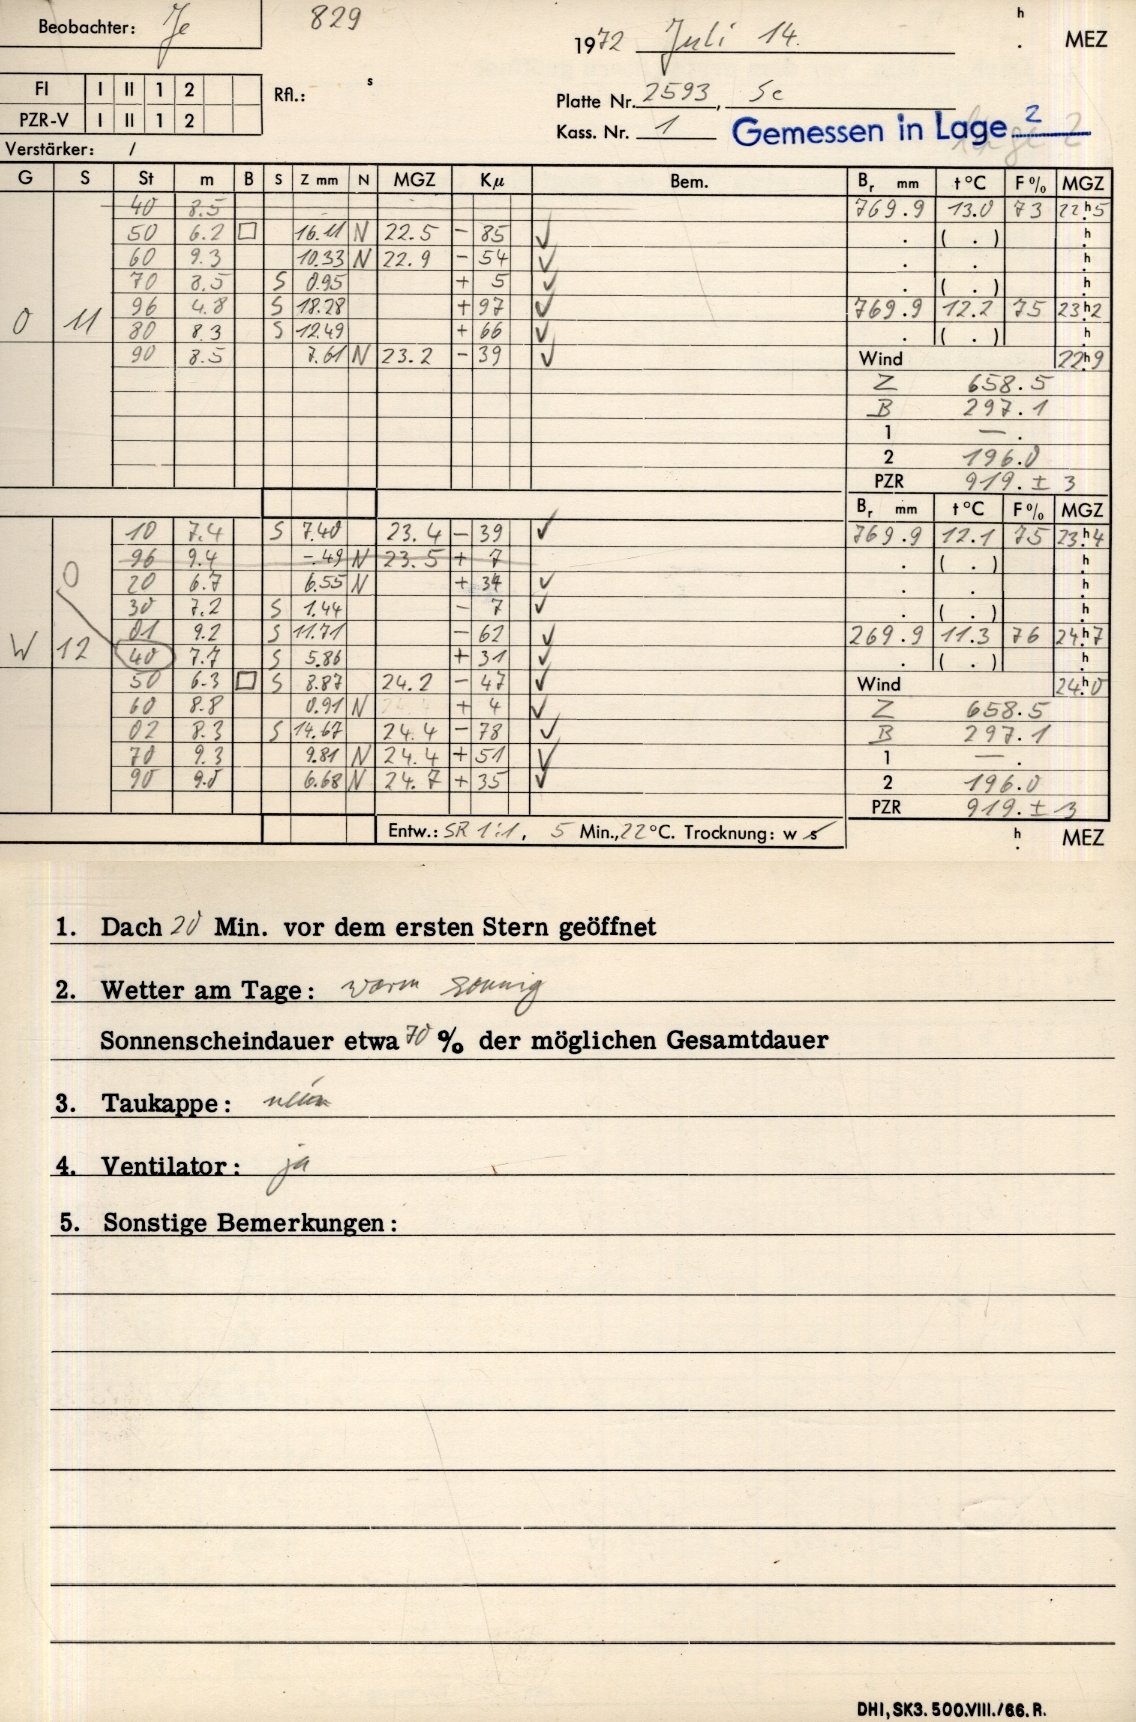 Beobachter: Je 829
1972 Juli 14. h . MEZ
FI I II 1 2 Rfl.: s
Platte Nr. 2593, Se
PZR-V I II 1 2
Kass. Nr. 1 Gemessen in Lage 2
Lage 2
Verstärker: /
G S St m B S Z mm N MGZ Kµ Bem. Br mm t°C F% MGZ
40 8.5 769.9 13.0 73 22h5
50 6.2 □ 16.11 N 22.5 - 85 ✓ . ( . ) h
60 9.3 10.33 N 22.9 - 54 ✓ . . h
70 8.5 S 0.95 + 5 ✓ . ( . ) h
O 11 96 4.8 S 18.28 + 97 ✓ 769.9 12.2 75 23h2
80 8.3 S 12.49 + 66 ✓ . ( . ) h
90 8.5 7.61 N 23.2 - 39 ✓ Wind 22h9
Z 658.5
B 297.1
1 — .
2 196.0
PZR 919. ± 3
Br mm t°C F% MGZ
10 7.4 S 7.40 23.4 - 39 ✓ 769.9 12.1 75 23h4
96 9.4 -.49 N 23.5 + 7 . ( . ) h
O 20 6.7 6.55 N + 34 ✓ . . h
30 7.2 S 1.44 - 7 ✓ . ( . ) h
01 9.2 S 11.71 - 62 ✓ 269.9 11.3 76 24h7
W 12 40 7.7 S 5.86 + 31 ✓ . ( . ) h
50 6.3 □ S 8.87 24.2 - 47 ✓ Wind 24h0
60 8.8 0.91 N + 4 ✓ Z 658.5
02 8.3 S 14.67 24.4 - 78 ✓ B 297.1
70 9.3 9.81 N 24.4 + 51 ✓ 1 — .
90 9.0 6.68 N 24.7 + 35 ✓ 2 196.0
PZR 919. ± 3
Entw.: SR 1:1, 5 Min., 22°C. Trocknung: w s h . MEZ
1. Dach 20 Min. vor dem ersten Stern geöffnet
2. Wetter am Tage: warm sonnig
Sonnenscheindauer etwa 70 % der möglichen Gesamtdauer
3. Taukappe: nein
4. Ventilator: ja
5. Sonstige Bemerkungen:
DHI, SK3. 500.VIII./66. R.